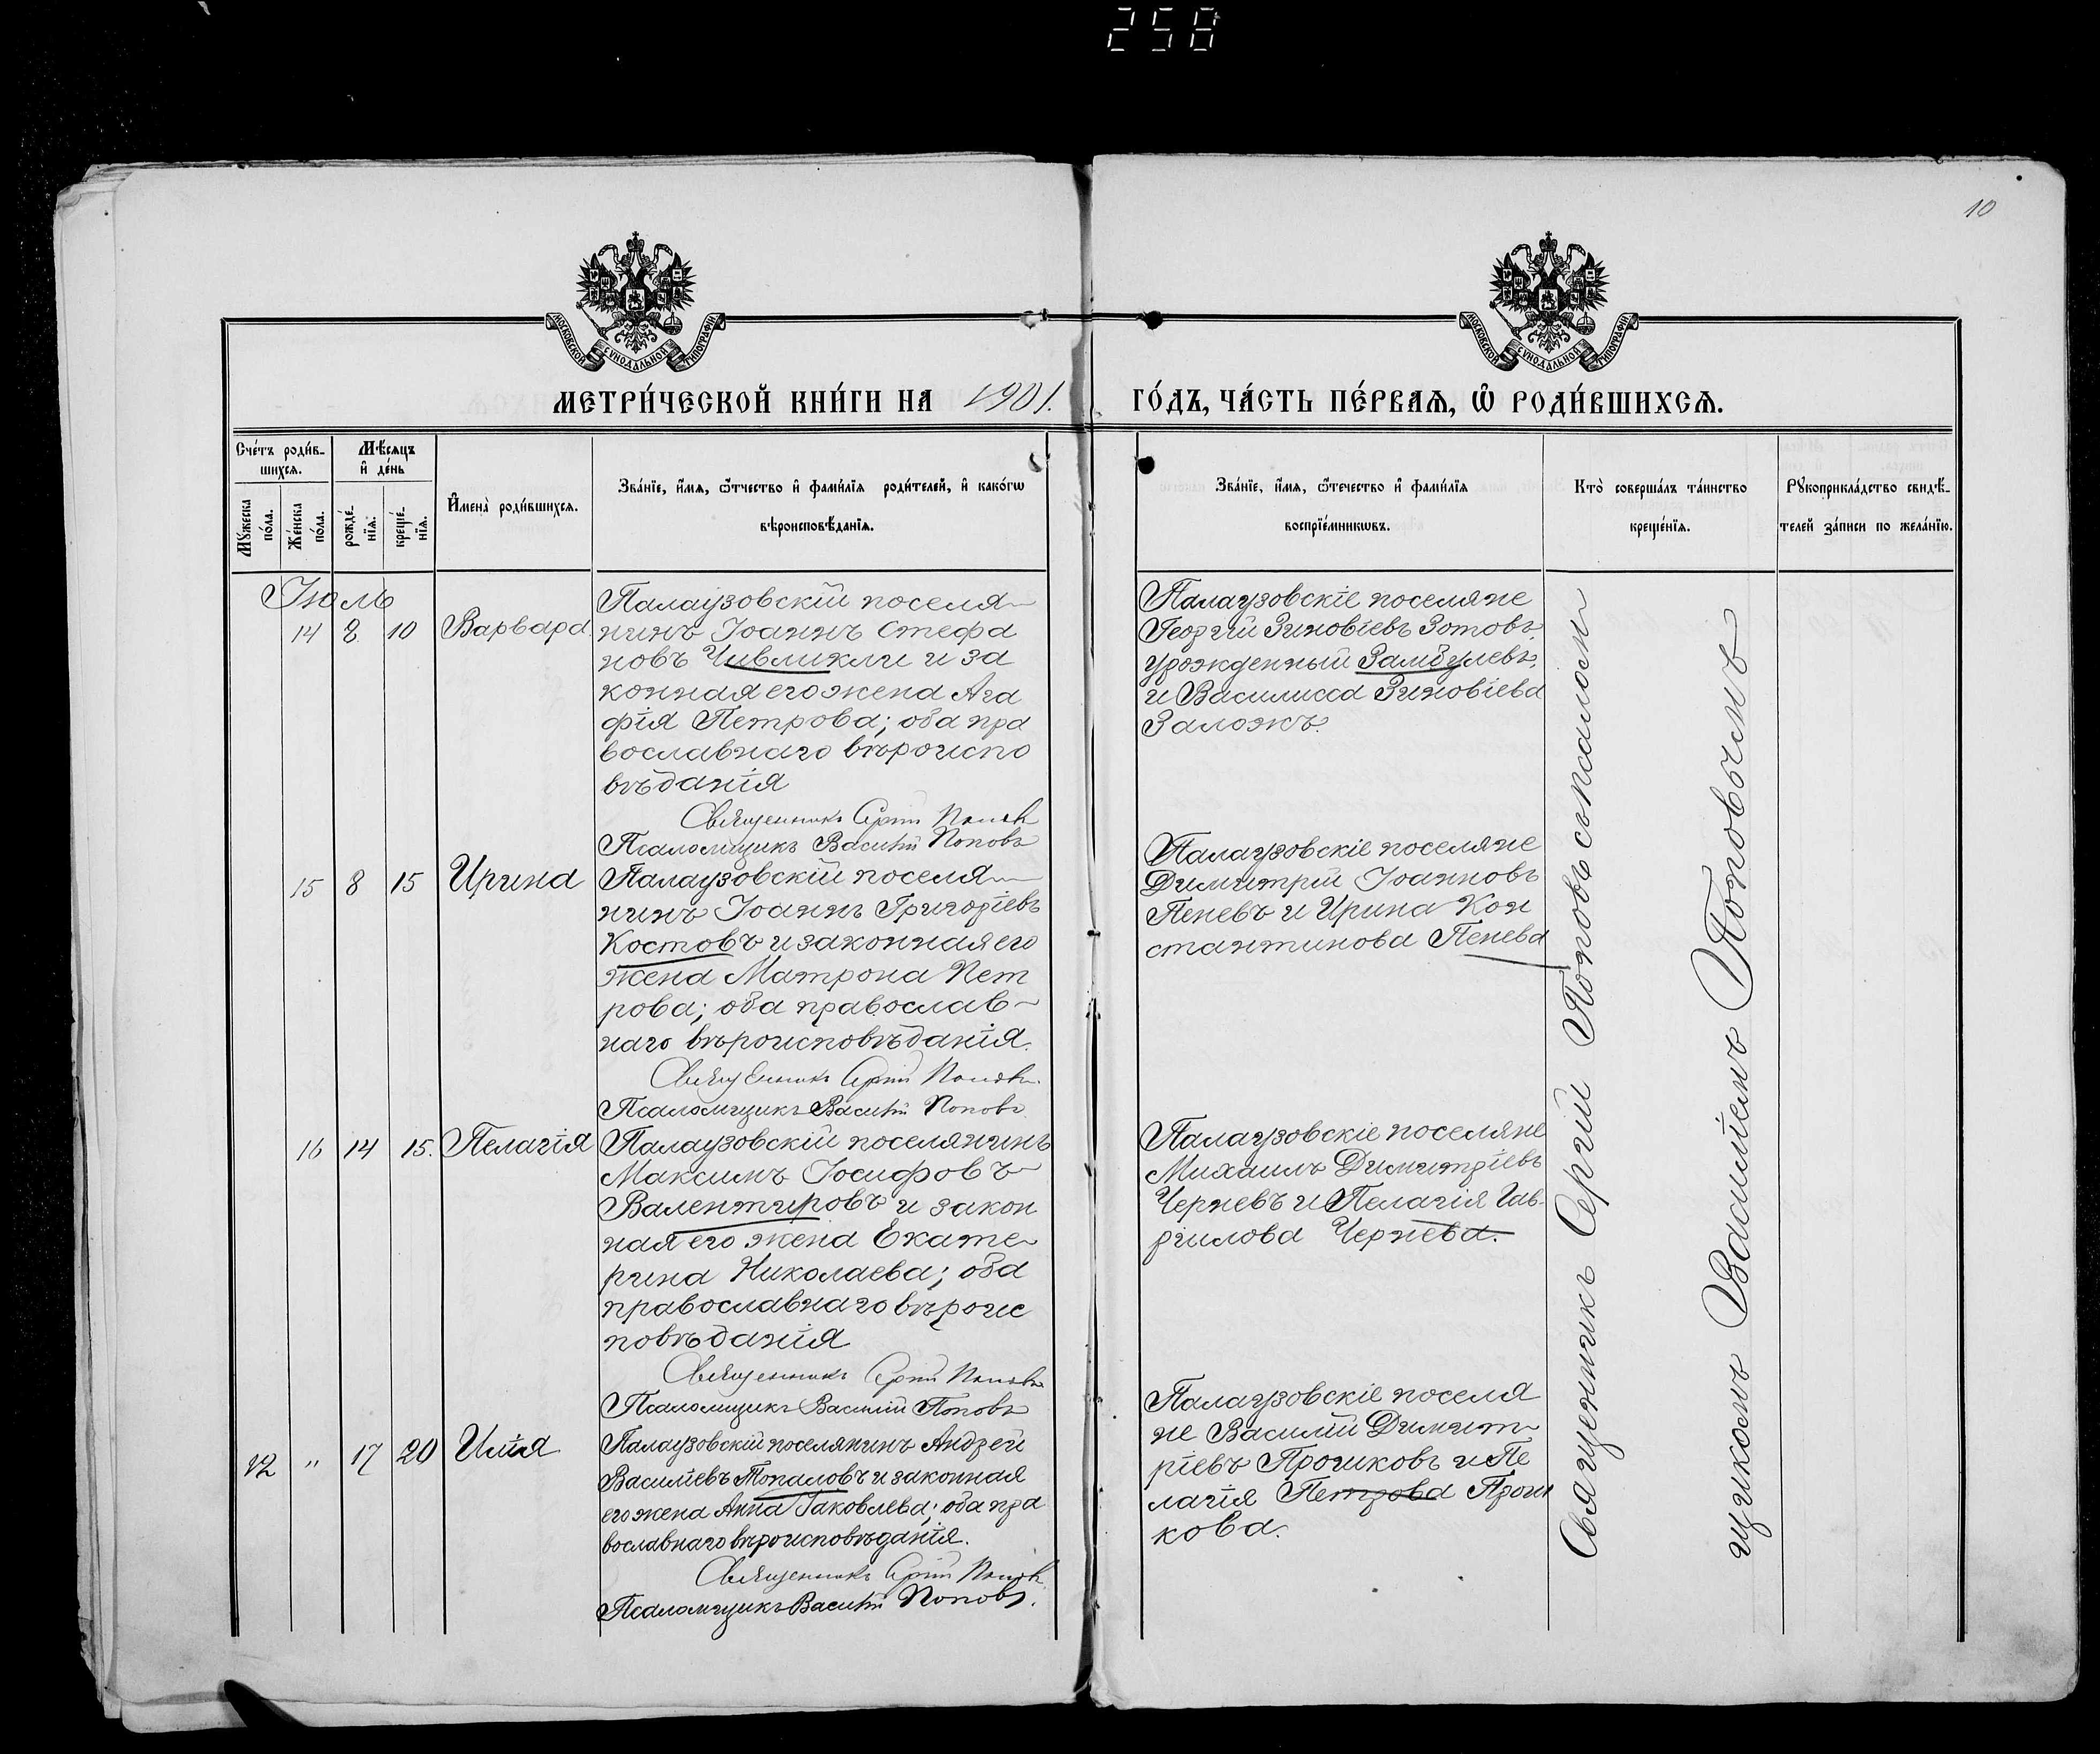 258
10
МОСКОВСКОЙ СѴНОДАЛЬНОЙ ТИПОГРАФІИ
МОСКОВСКОЙ СѴНОДАЛЬНОЙ ТИПОГРАФІИ
МЕТРИ́ЧЕСКОЙ КНИ́ГИ НА 1901.
ГО́ДЪ, ЧА́СТЬ ПЕ́РВАѦ, Ѽ РОДИ́ВШИХСѦ.
Сче́тъ роди́в-
шихсѧ.
Мѣсѧцъ
и҆ де́нь
Мꙋ́жеска
по́ла.
Же́нска
по́ла.
рожде́-
нїѧ.
креще́-
нїѧ.
И҆мена̀ роди́вшихсѧ.
Зва́нїе, и҆́мѧ, ѻ҆́тчество и҆ фами́лїѧ роди́телей, и҆ како́гѡ
вѣроисповѣ́данїѧ.
Зва́нїе, и҆́мѧ, ѻ҆те́чество и҆ фами́лїѧ
воспрїе́мникѡвъ.
Кто̀ соверша́лъ та́инство
креще́нїѧ.
Рꙋкоприкла́дство свидѣ́-
телей за́писи по жела́нїю.
Іюль
14 8 10 Варвара
Палаузовскій поселя-
нинъ Іоаннъ Стефа
новъ Чивликли и за
конная его жена Ага
фія Петрова; оба пра
вославнаго вѣроиспо
вѣданія
Священникъ Сергій Поповъ
Псаломщикъ Василій Поповъ
Палаузовскіе поселяне
Георгій Зиновіевъ Зотовъ,
урожденный Замбулевъ,
и Василисса Зиновіева
Заложъ.
15 8 15 Ирина
Палаузовскій поселя-
нинъ Іоаннъ Григоріевъ
Костовъ и законная его
жена Матрона Пет
рова; оба православ-
наго вѣроисповѣданія.
Священникъ Сергій Поповъ.
Псаломщикъ Василій Поповъ
Палаузовскіе поселяне
Димитрій Іоанновъ
Пеневъ и Ирина Кон
стантинова Пенева
16 14 15. Пелагія
Палаузовскій поселянинъ
Максимъ Іосифовъ
Валентировъ и закон
ная его жена Екате-
рина Николаева; оба
православнаго вѣроис
повѣданія
Священникъ Сергій Поповъ
Псаломщикъ Василій Поповъ
Палаузовскіе поселяне
Михаилъ Димитріевъ
Черневъ и Пелагія Гав-
риилова Чернева.
12 " 17 20 Илія
Палаузовскій поселянинъ Андрей
Василіевъ Топаловъ и законная
его жена Анна Іаковлева; оба пра
вославнаго вѣроисповѣданія.
Священникъ Сергій Поповъ
Псаломщикъ Василій Поповъ.
Палаузовскіе поселя
не Василій Димит-
ріевъ Прочиковъ и Пе
лагія Петрова Прочи
кова.
Священникъ Сергій Поповъ съ псалом
щикомъ Василіемъ Поповымъ